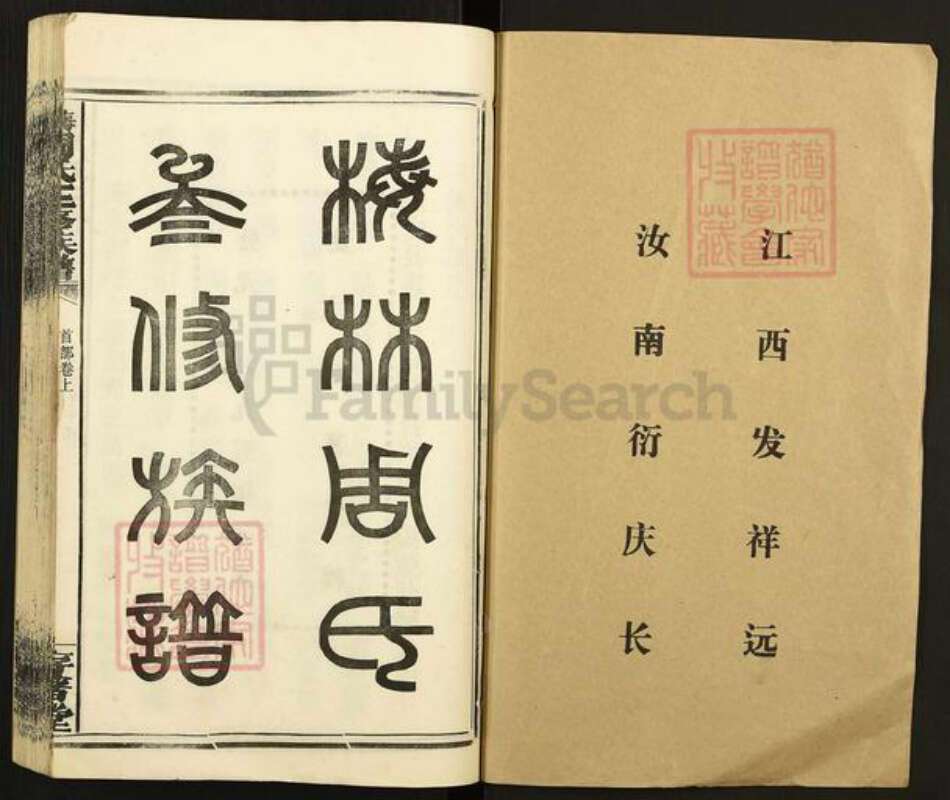 江西发祥远
汝南衍庆长
梅林周氏
叁修族譜
首部卷上
FamilySearch